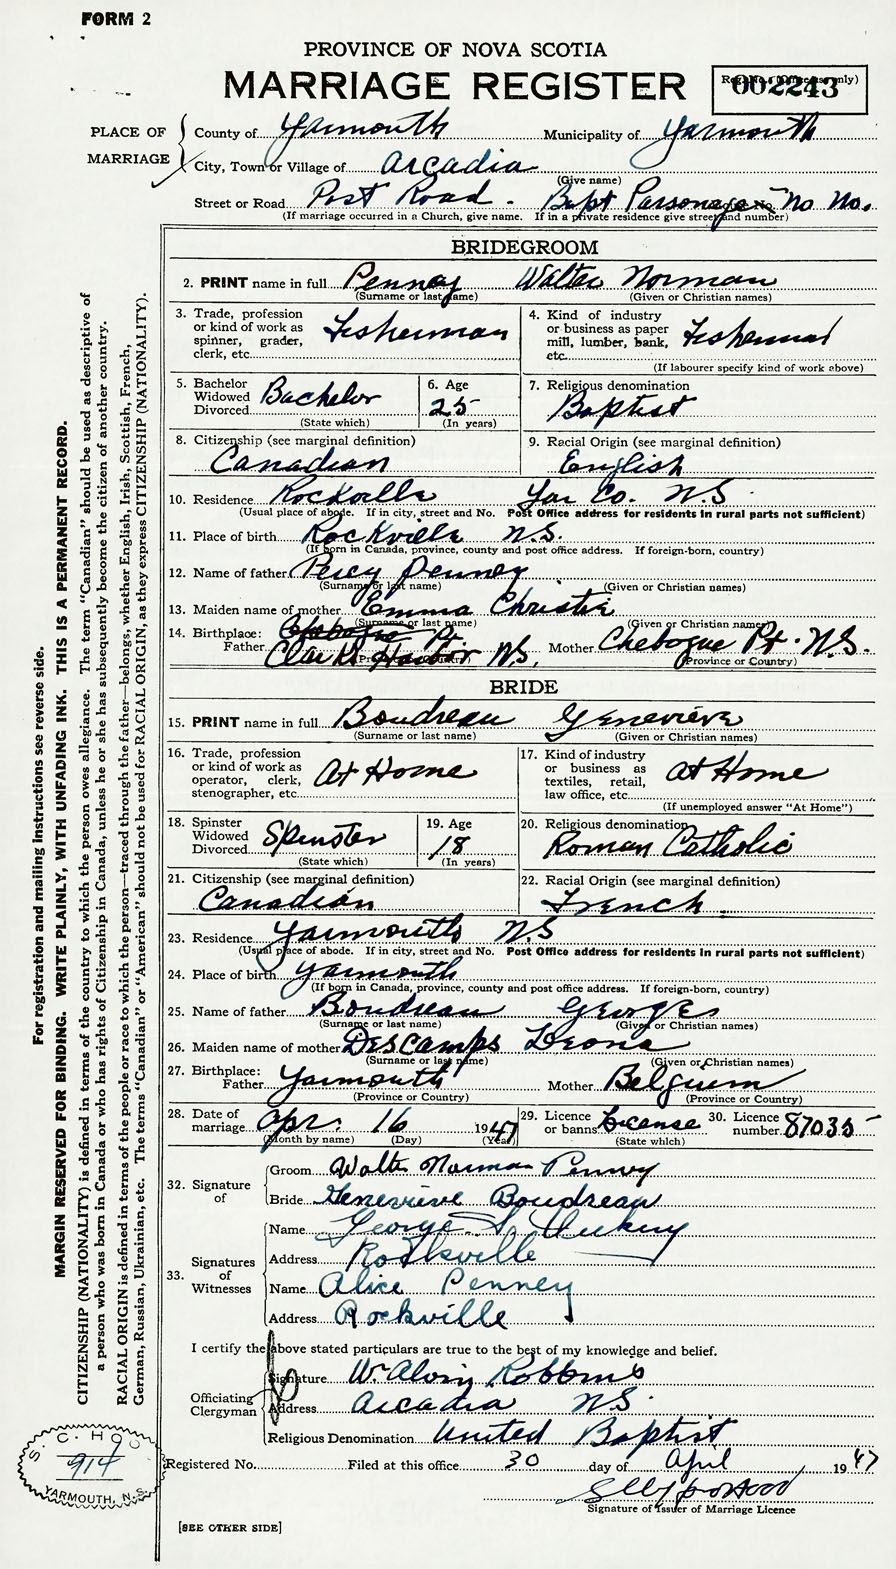 FORM 2
PROVINCE OF NOVA SCOTIA
MARRIAGE REGISTER
002243
PLACE OF MARRIAGE
County of Yarmouth Municipality of Yarmouth
City, Town or Village of Arcadia
(Give name)
Street or Road Post Road - Bapt Parsonage No No.
(If marriage occurred in a Church, give name. If in a private residence give street and number)
BRIDEGROOM
2. PRINT name in full Penney Walter Norman
(Surname or last name) (Given or Christian names)
3. Trade, profession or kind of work as spinner, grader, clerk, etc. Fisherman
4. Kind of industry or business as paper mill, lumber, bank, etc. Fisherman
(If labourer specify kind of work above)
5. Bachelor Widowed Divorced Bachelor
(State which)
6. Age 25
(In years)
7. Religious denomination
Baptist
8. Citizenship (see marginal definition)
Canadian
9. Racial Origin (see marginal definition)
English
10. Residence Rockville Yar Co. N.S.
(Usual place of abode. If in city, street and No. Post Office address for residents in rural parts not sufficient)
11. Place of birth Rockville N.S.
(If born in Canada, province, county and post office address. If foreign-born, country)
12. Name of father Percy Penney
(Surname or last name) (Given or Christian names)
13. Maiden name of mother Emma Christie
(Surname or last name) (Given or Christian names)
14. Birthplace: Chebogue Pt.
Father Clark Harbor N.S. Mother Chebogue Pt. N.S.
(Province or Country) (Province or Country)
BRIDE
15. PRINT name in full Boudreau Genevieve
(Surname or last name) (Given or Christian names)
16. Trade, profession or kind of work as operator, clerk, stenographer, etc. At Home
17. Kind of industry or business as textiles, retail, law office, etc. At Home
(If unemployed answer "At Home")
18. Spinster Widowed Divorced Spinster
(State which)
19. Age 18
(In years)
20. Religious denomination
Roman Catholic
21. Citizenship (see marginal definition)
Canadian
22. Racial Origin (see marginal definition)
French
23. Residence Yarmouth N.S
(Usual place of abode. If in city, street and No. Post Office address for residents in rural parts not sufficient)
24. Place of birth Yarmouth
(If born in Canada, province, county and post office address. If foreign-born, country)
25. Name of father Boudreau George
(Surname or last name) (Given or Christian names)
26. Maiden name of mother Descamps Leona
(Surname or last name) (Given or Christian names)
27. Birthplace:
Father Yarmouth Mother Belguem
(Province or Country) (Province or Country)
28. Date of marriage Apr. 16 1947
(Month by name) (Day) (Year)
29. Licence or banns License
(State which)
30. Licence number 87035
32. Signature of
Groom Walter Norman Penney
Bride Genevieve Boudreau
33. Signatures of Witnesses
Name George
Address Rockville
Name Alice Penney
Address Rockville
I certify the above stated particulars are true to the best of my knowledge and belief.
Officiating Clergyman
Signature W. Alvin Robbins
Address Arcadia N.S.
Religious Denomination United Baptist
Registered No. Filed at this office 30 day of April 1947
Signature of Issuer of Marriage Licence
[SEE OTHER SIDE]
For registration and mailing instructions see reverse side.
MARGIN RESERVED FOR BINDING. WRITE PLAINLY, WITH UNFADING INK. THIS IS A PERMANENT RECORD.
CITIZENSHIP (NATIONALITY) is defined in terms of the country to which the person owes allegiance. The term "Canadian" should be used as descriptive of
a person who was born in Canada or who has rights of Citizenship in Canada, unless he or she has subsequently become the citizen of another country.
RACIAL ORIGIN is defined in terms of the people or race to which the person—traced through the father—belongs, whether English, Irish, Scottish, French,
German, Russian, Ukrainian, etc. The terms "Canadian" or "American" should not be used for RACIAL ORIGIN, as they express CITIZENSHIP (NATIONALITY).
914
YARMOUTH, N.S.